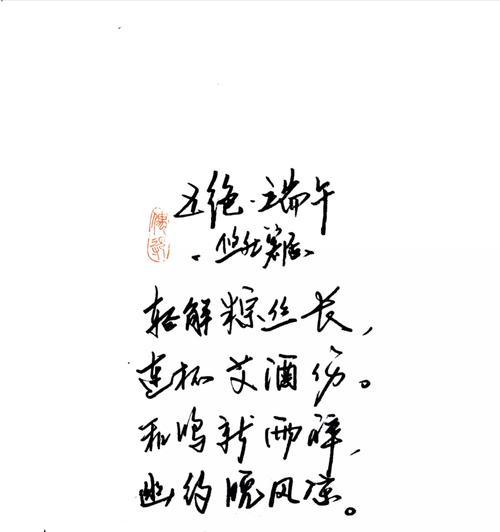 五绝·端午
轻解粽丝长，
连杯艾酒伤。
和鸣新雨醉，
幽约晚风凉。